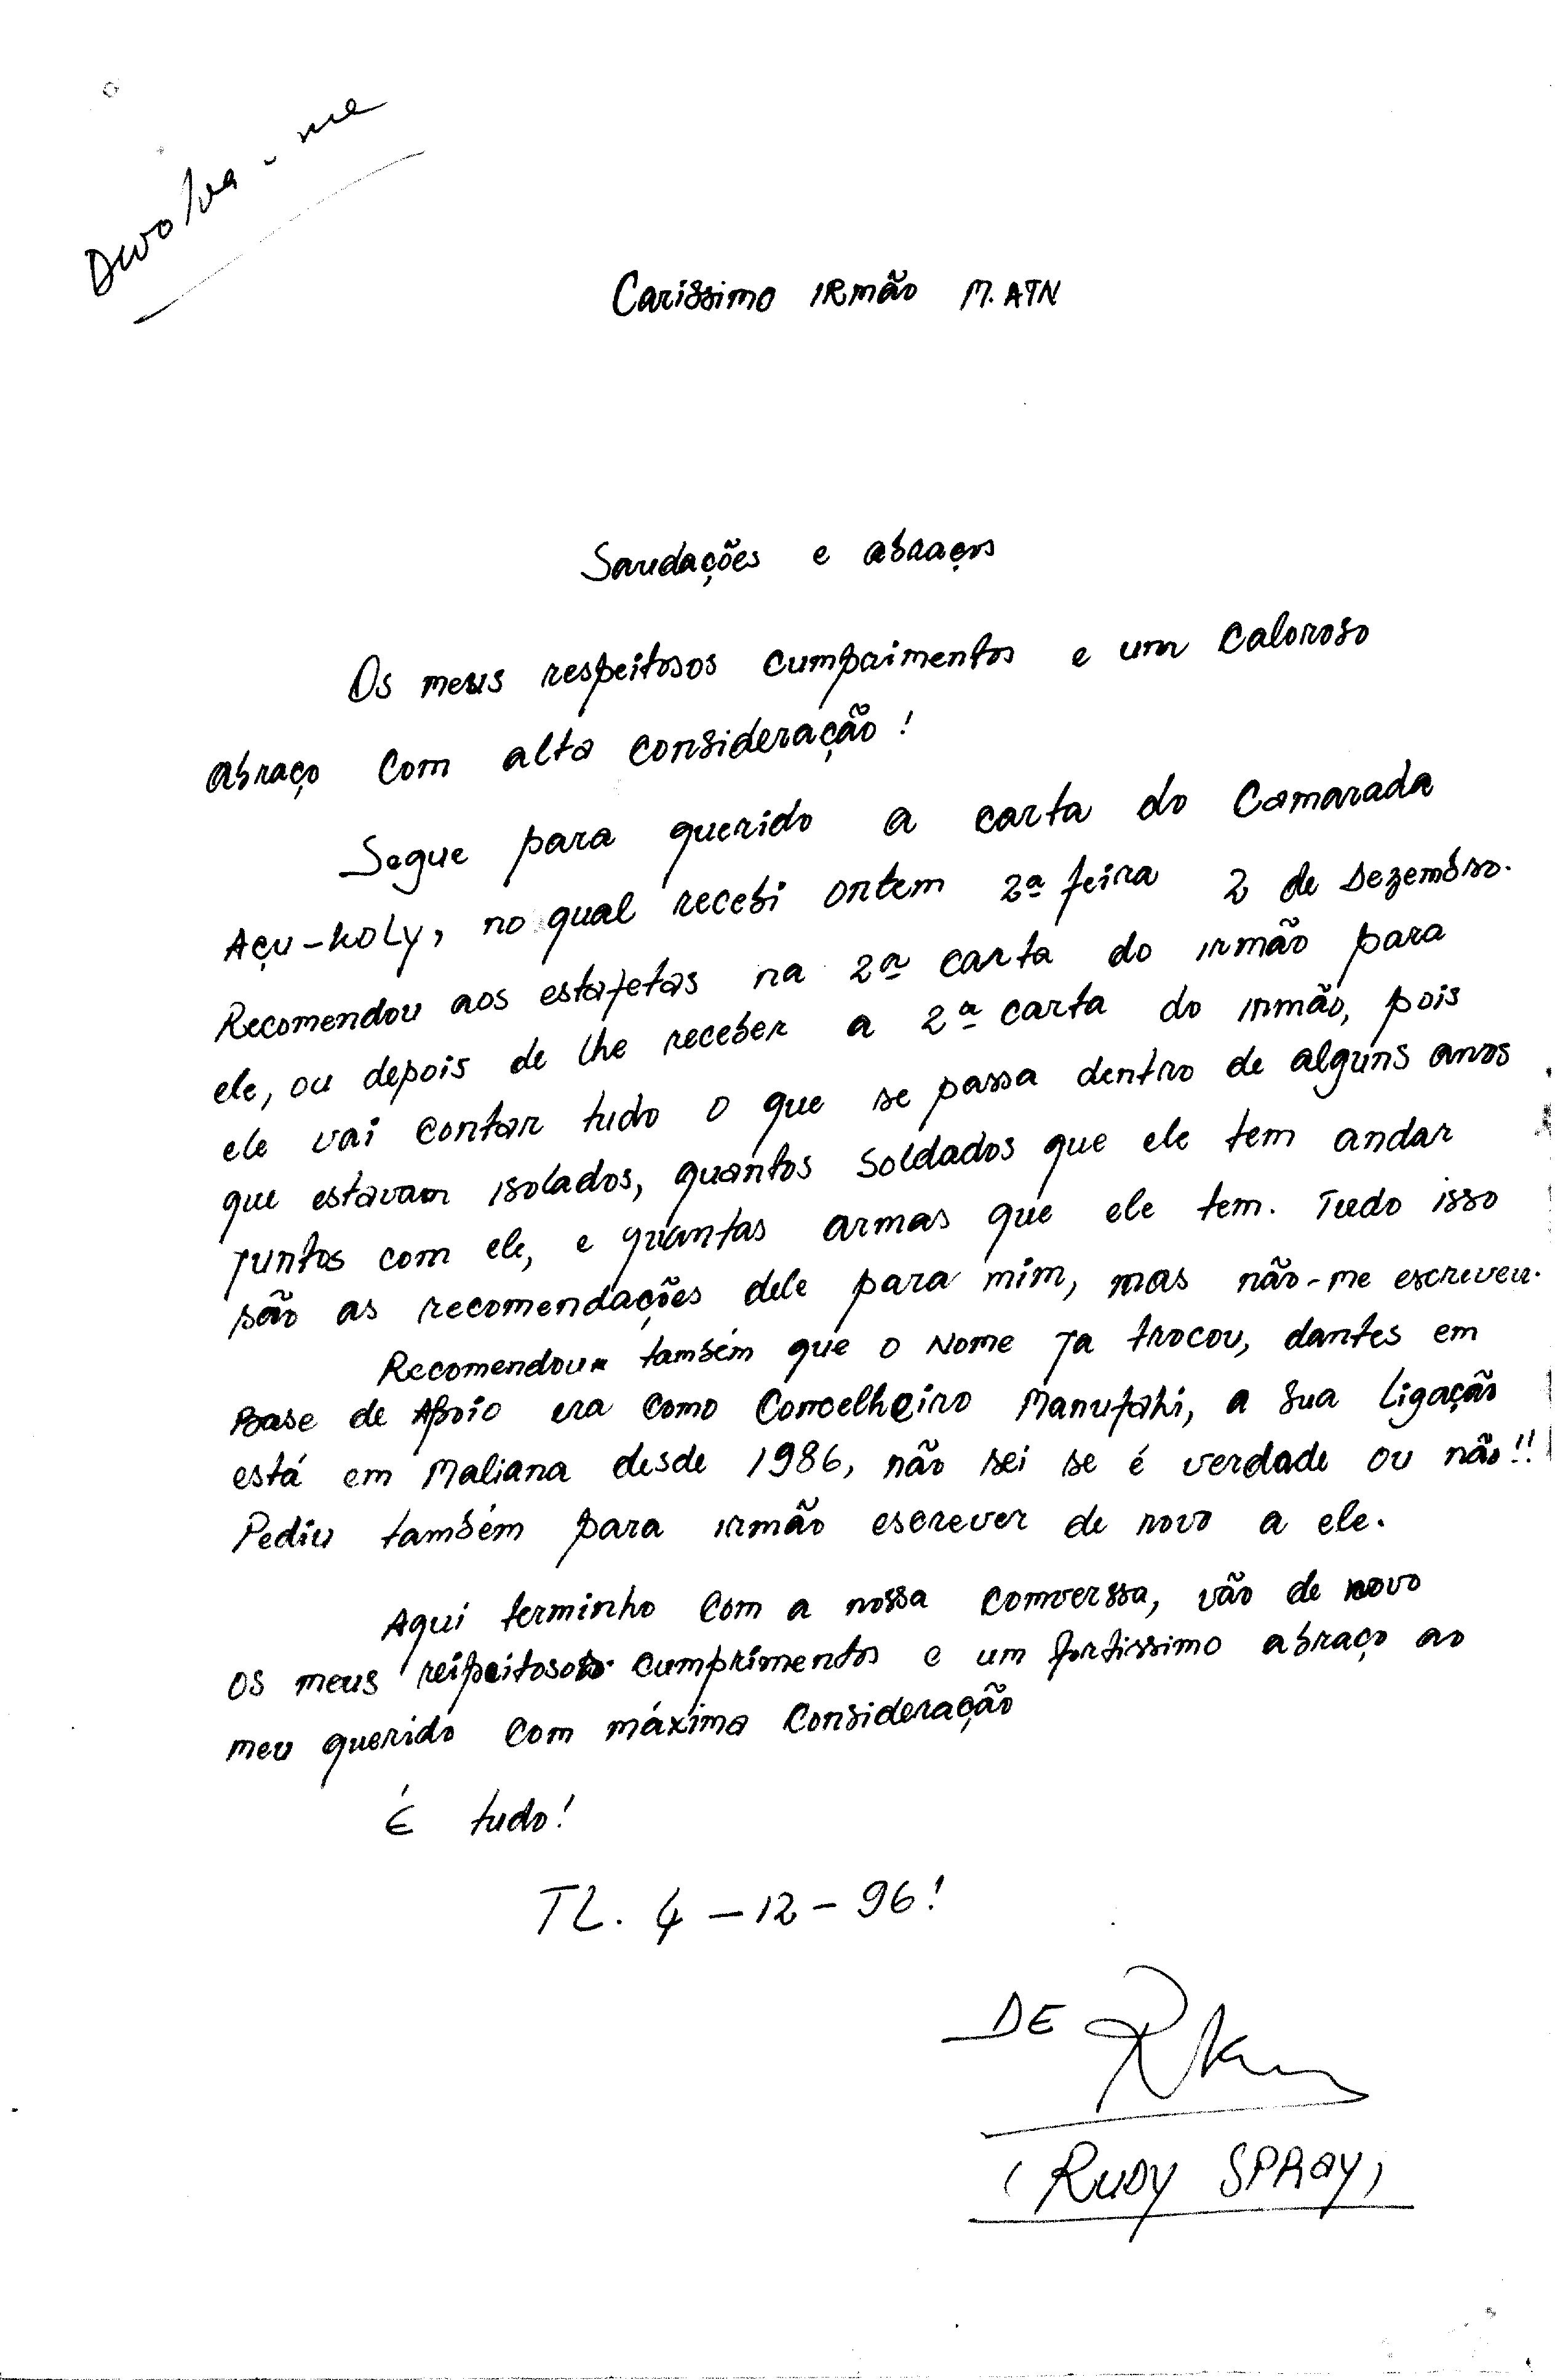 Devolva-me
Caríssimo IRmão M. ATN
Saudações e abraços
Os meus respeitosos cumprimentos e um caloroso
abraço com alta consideração!
Segue para querido a carta do Camarada
Açu-koLy, no qual recebi ontem 2ª feira 2 de Dezembro.
Recomendou aos estafetas na 2ª carta do irmão para
ele, ou depois de lhe receber a 2ª carta do irmão, pois
ele vai contar tudo o que se passa dentro de alguns anos
que estavam isolados, quantos soldados que ele tem andar
juntos com ele, e quantas armas que ele tem. Tudo isso
são as recomendações dele para mim, mas não-me escreveu.
Recomendou também que o Nome Ja trocou, dantes em
Base de Apoio era como Concelheiro Manufahi, a sua Ligação
está em Maliana desde 1986, não sei se é verdade ou não!!
Pediu também para irmão escrever de novo a ele.
Aqui terminho com a nossa converssa, vão de novo
os meus reispeitosos cumprimentos e um fortissimo abraço ao
meu querido com máxima consideração
É tudo!
TL. 4-12-96!
DE
(RUDY SPRAY)